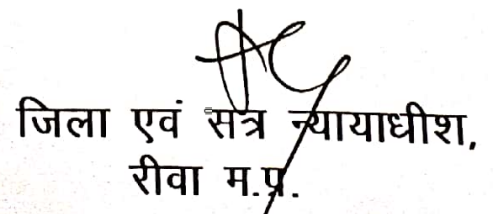 जिला एवं सत्र न्यायाधीश,
रीवा म.प्र.